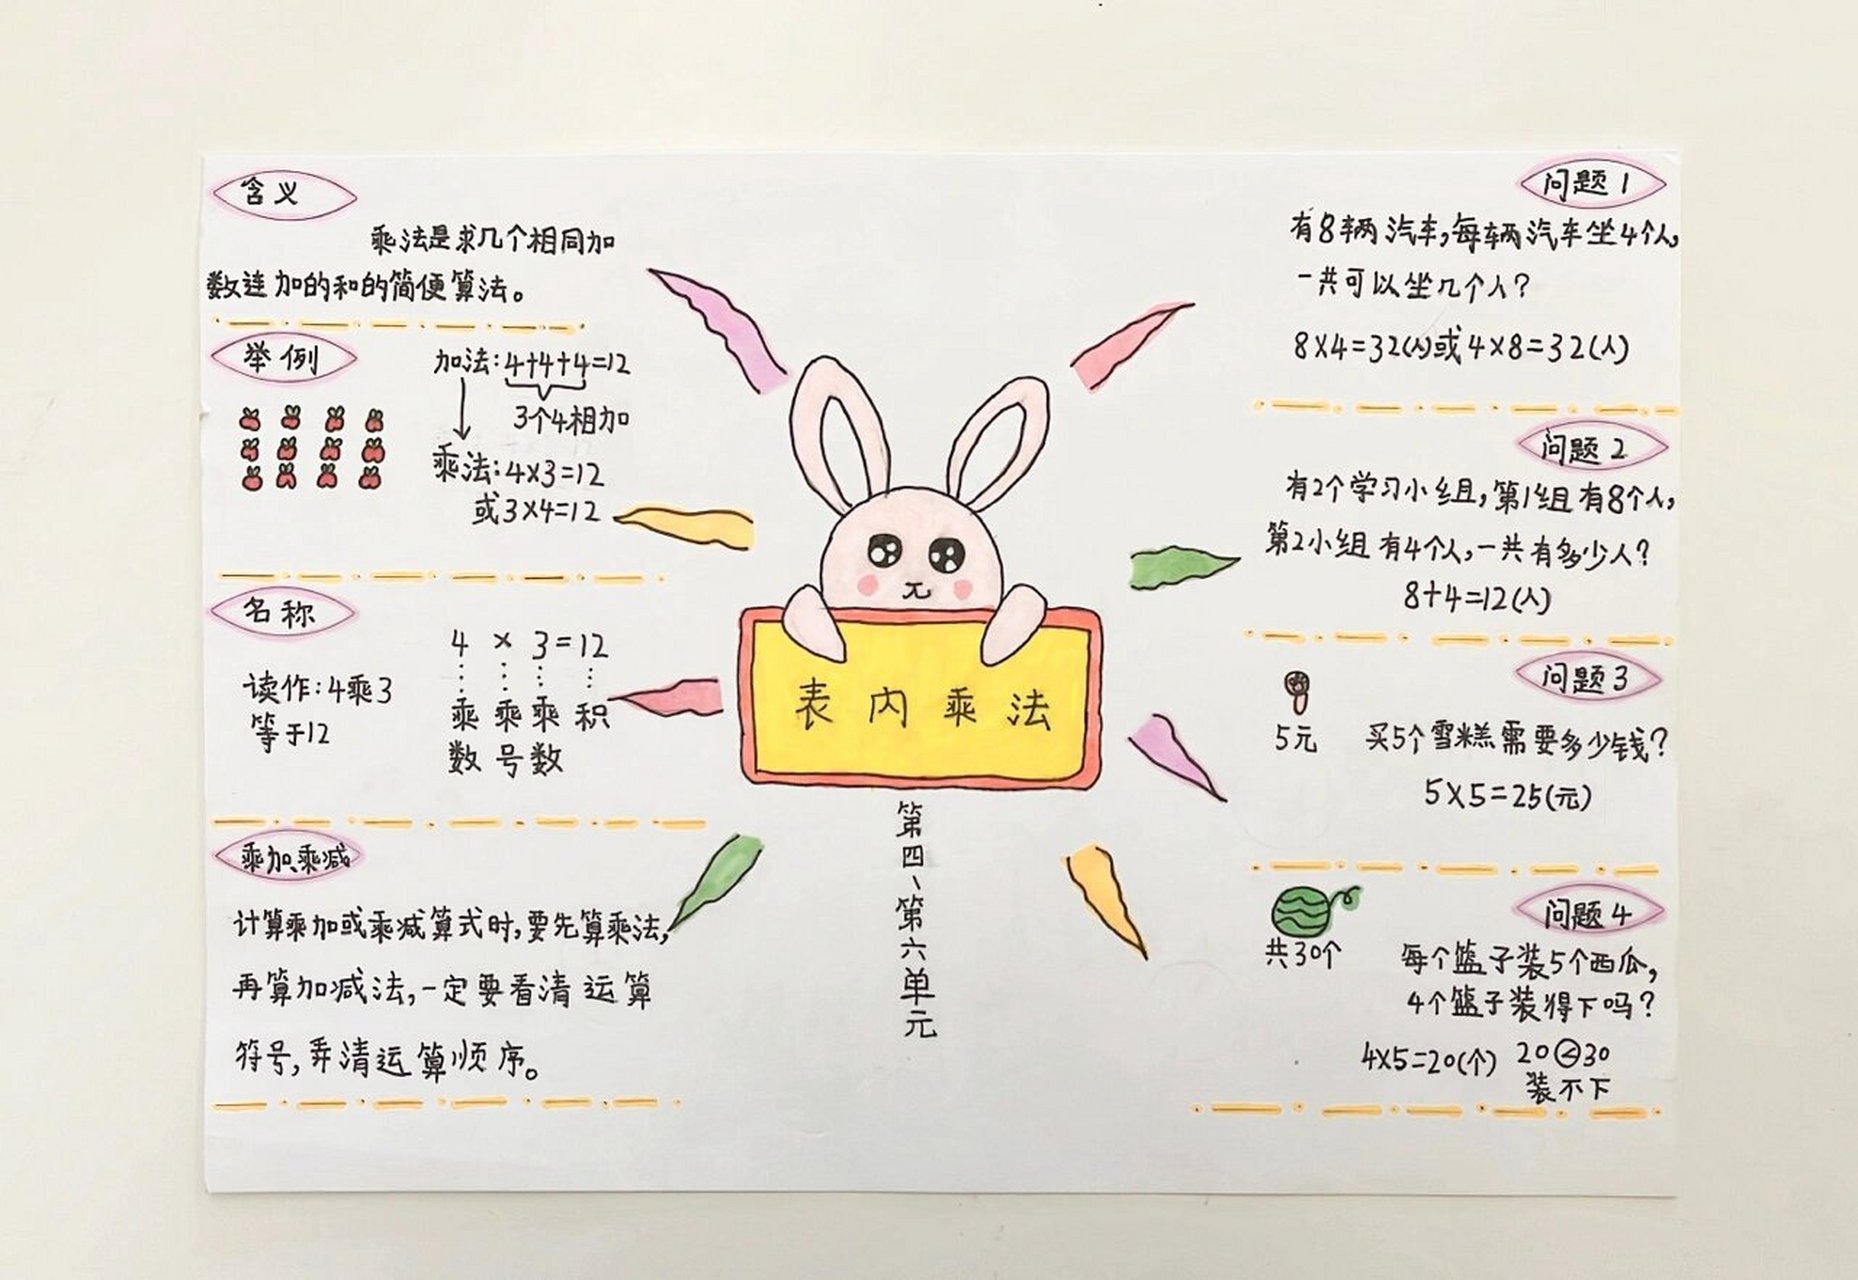 含义
乘法是求几个相同加
数连加的和的简便算法。
举例
加法:4+4+4=12
3个4相加
乘法:4×3=12
或3×4=12
名称
读作:4乘3
等于12
4 × 3=12
乘 乘 乘 积
数 号 数
乘加、乘减
计算乘加或乘减算式时,要先算乘法,
再算加减法,一定要看清运算
符号,弄清运算顺序。
表内乘法
第四、第六单元
问题1
有8辆汽车,每辆汽车坐4个人,
一共可以坐几个人?
8×4=32(人)或4×8=32(人)
问题2
有2个学习小组,第1组有8个人,
第2小组有4个人,一共有多少人?
8+4=12(人)
问题3
5元
买5个雪糕需要多少钱?
5×5=25(元)
问题4
共30个
每个篮子装5个西瓜,
4个篮子装得下吗?
4×5=20(个) 20<30
装不下